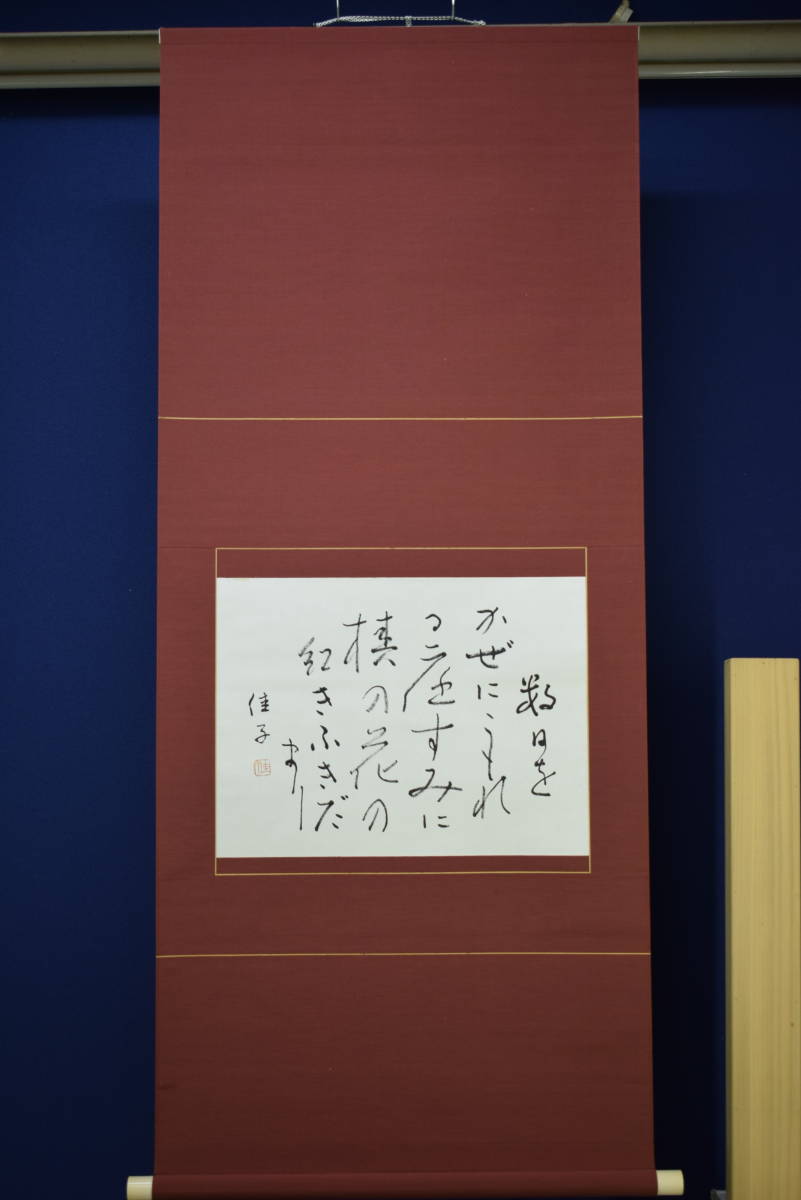 数日を
かぜにこもれ
る庭すみに
椿の花の
紅きふきだ
まり
佳子